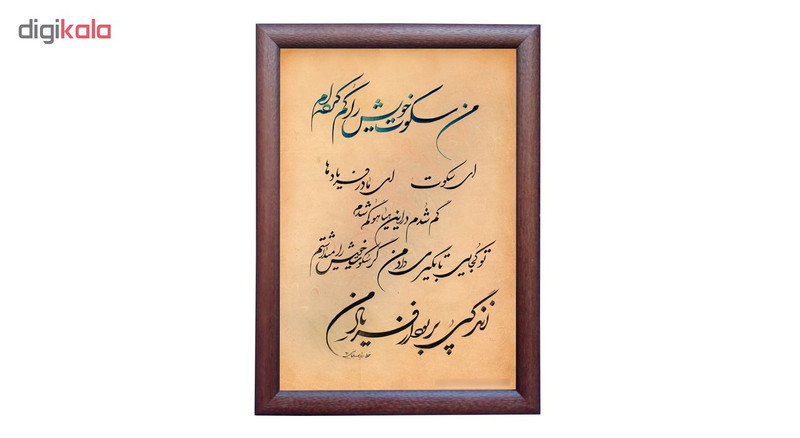 digikala
من سکوت خویش را گم کرده‌ام
ای سکوت ای مادر فریادها
گم شدم در این هیاهو گم شدم
تو کجایی تا بگیری داد من گر سکوت خویش را میداشتم
زندگی پر بود از فریاد من